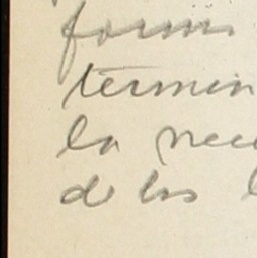 form
termin
la nece
de los l